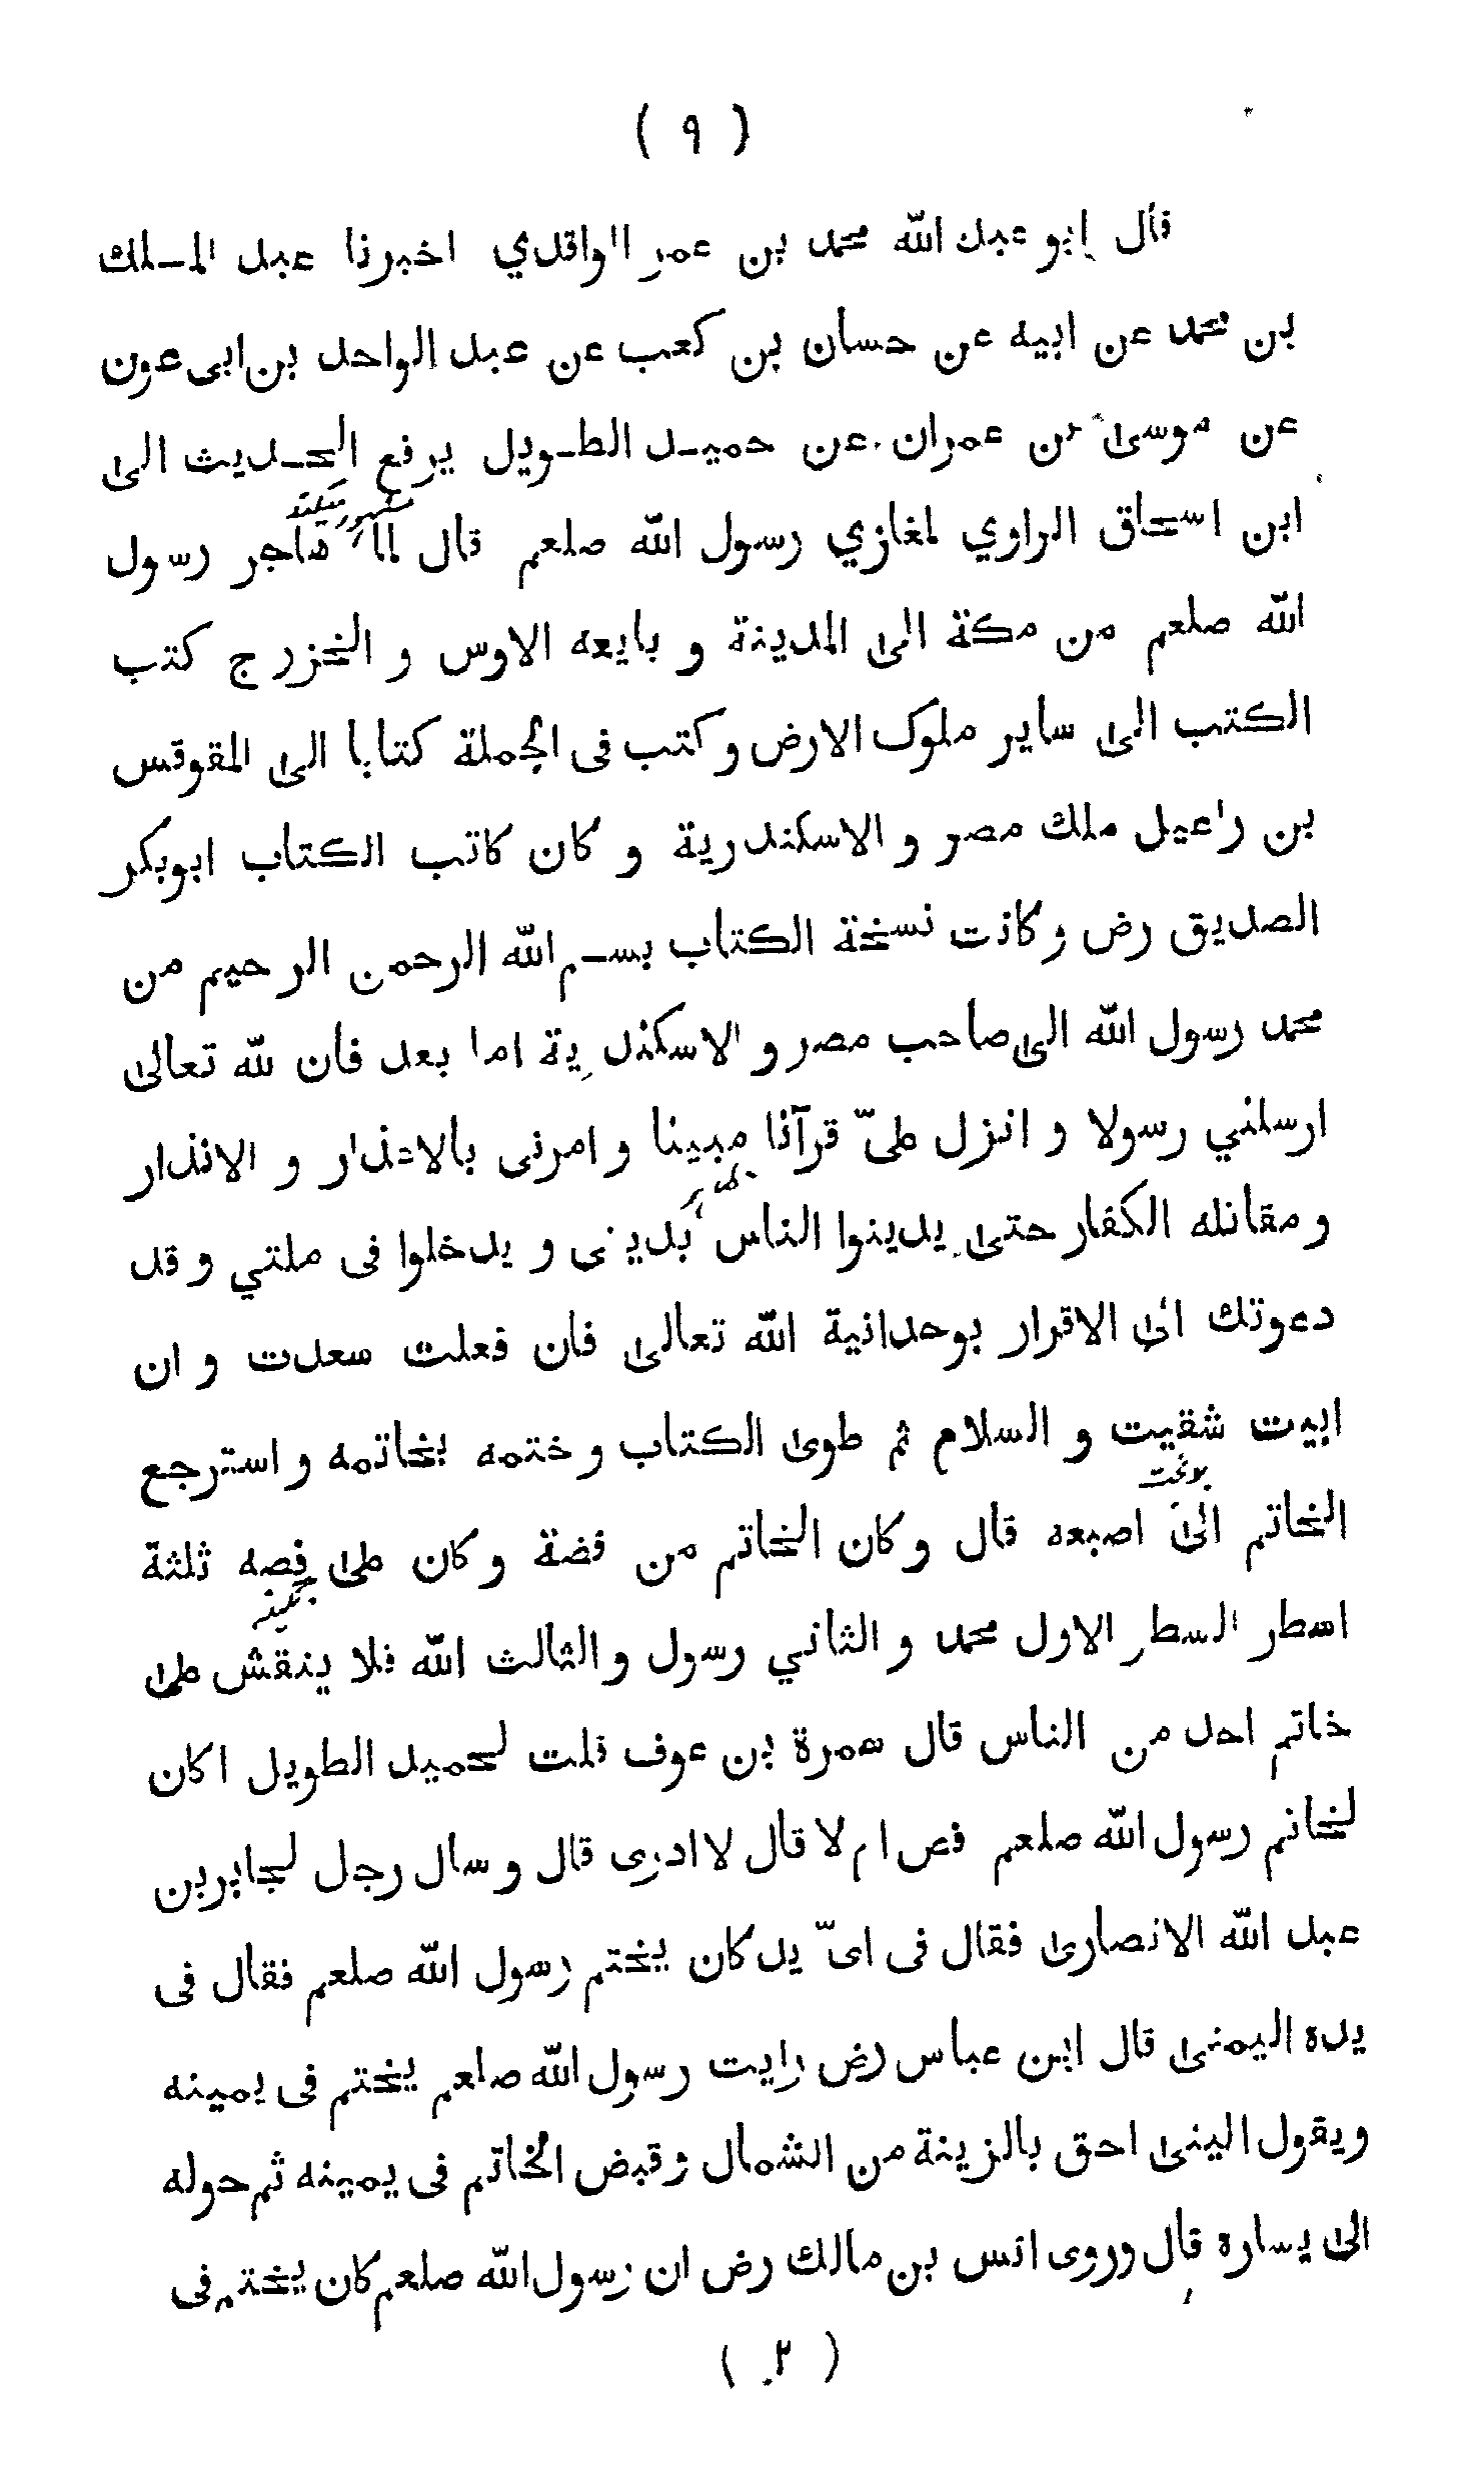 ( ٩ )
قال ابو عبد الله محمد بن عمر الواقدي اخبرنا عبد الملك
بن محمد عن ابيه عن حسان بن كعب عن عبد الواحد بن ابى عون
عن موسى بن عمران عن حميد الطويل يرفع الحديث الى
ابن اسحاق الراوي لمغازي رسول الله صلعم قال لما هاجر رسول
الله صلعم من مكة الى المدينة و بايعه الاوس و الخزرج كتب
الكتب الى ساير ملوك الارض و كتب فى الجملة كتابا الى المقوقس
بن راعيل ملك مصر و الاسكندرية و كان كاتب الكتاب ابوبكر
الصديق رض و كانت نسخة الكتاب بسم الله الرحمن الرحيم من
محمد رسول الله الى صاحب مصر و الاسكندرية اما بعد فان لله تعالى
ارسلني رسولا و انزل علىّ قرآنا مبينا و امرنى بالاعذار و الانذار
و مقاتله الكفار حتى يدينوا الناس بدينى و يدخلوا فى ملتي و قد
دعوتك الى الاقرار بوحدانية الله تعالى فان فعلت سعدت و ان
ابيت شقيت و السلام ثم طوى الكتاب و ختمه بخاتمه و استرجع
الخاتم الى اصبعه قال و كان الخاتم من فضة و كان على فصه ثلثة
نگینه
اسطر السطر الاول محمد و الثاني رسول و الثالث الله فلا ينقش على
خاتم احد من الناس قال سمرة بن عوف قلت لحميد الطويل اكان
لخاتم رسول الله صلعم فص ام لا قال لا ادرى قال و سال رجل لجابر بن
عبد الله الانصارى فقال فى اىّ يد كان يختم رسول الله صلعم فقال فى
يده اليمنى قال ابن عباس رض رايت رسول الله صلعم يختم فى يمينه
ويقول اليمنى احق بالزينة من الشمال و قبض الخاتم فى يمينه ثم حوله
الى يساره قال وروى انس بن مالك رض ان رسول الله صلعم كان يختم فى
( ٢ )